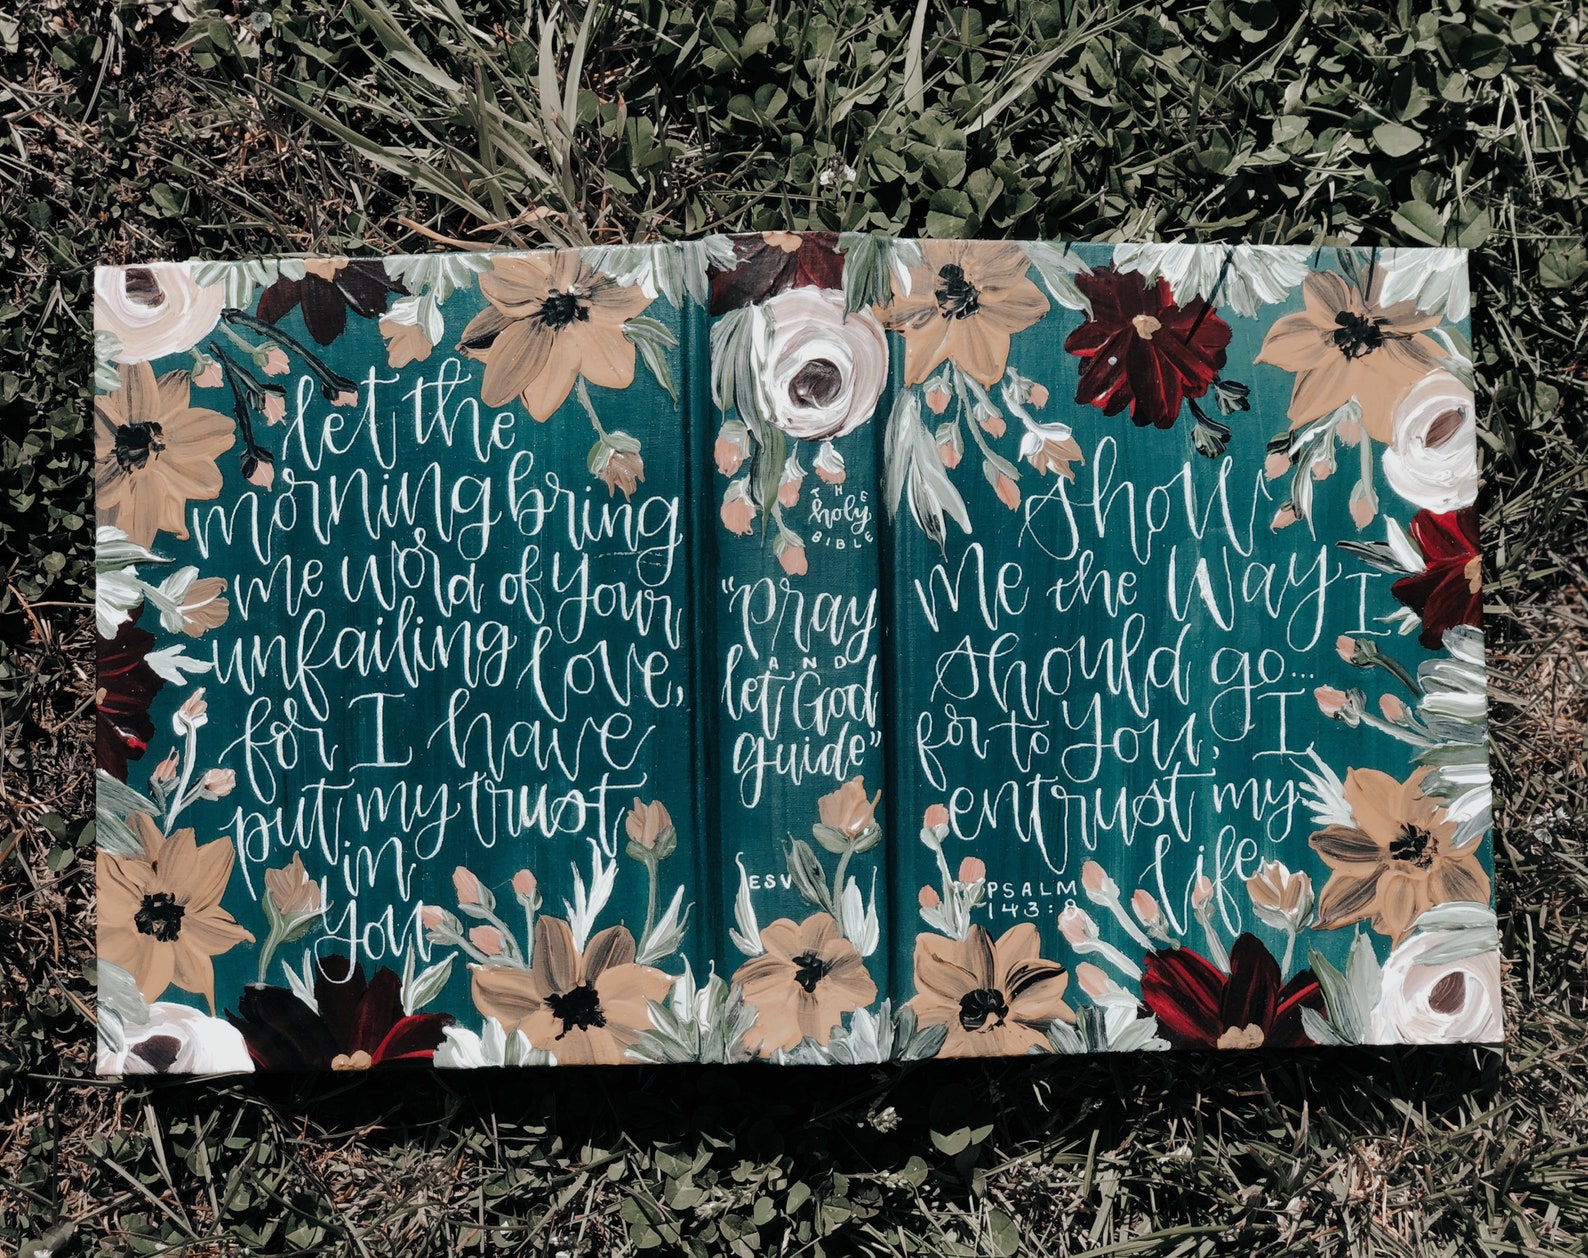 let the
morning bring
me word of your
unfailing love,
for I have
put my trust
in
you
THE
holy
BIBLE
"pray
AND
let God
guide"
ESV
Show
Me the Way I
should go...
for to You, I
entrust my
life
PSALM
143:8